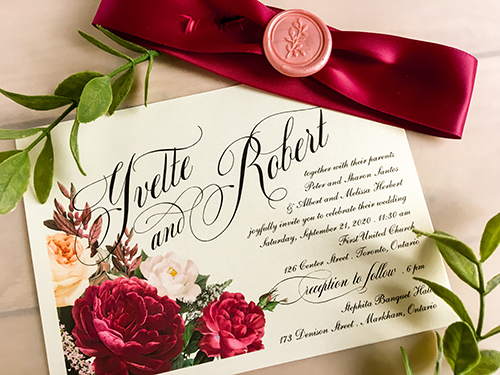 Yvette
and Robert
together with their parents
Peter and Sharon Santos
& Albert and Melissa Herbert
joyfully invite you to celebrate their wedding
Saturday, September 21, 2020 . 11:30 am
First United Church
126 Center Street . Toronto, Ontario
reception to follow . 6 pm
Stephita Banquet Hall
173 Denison Street . Markham, Ontario